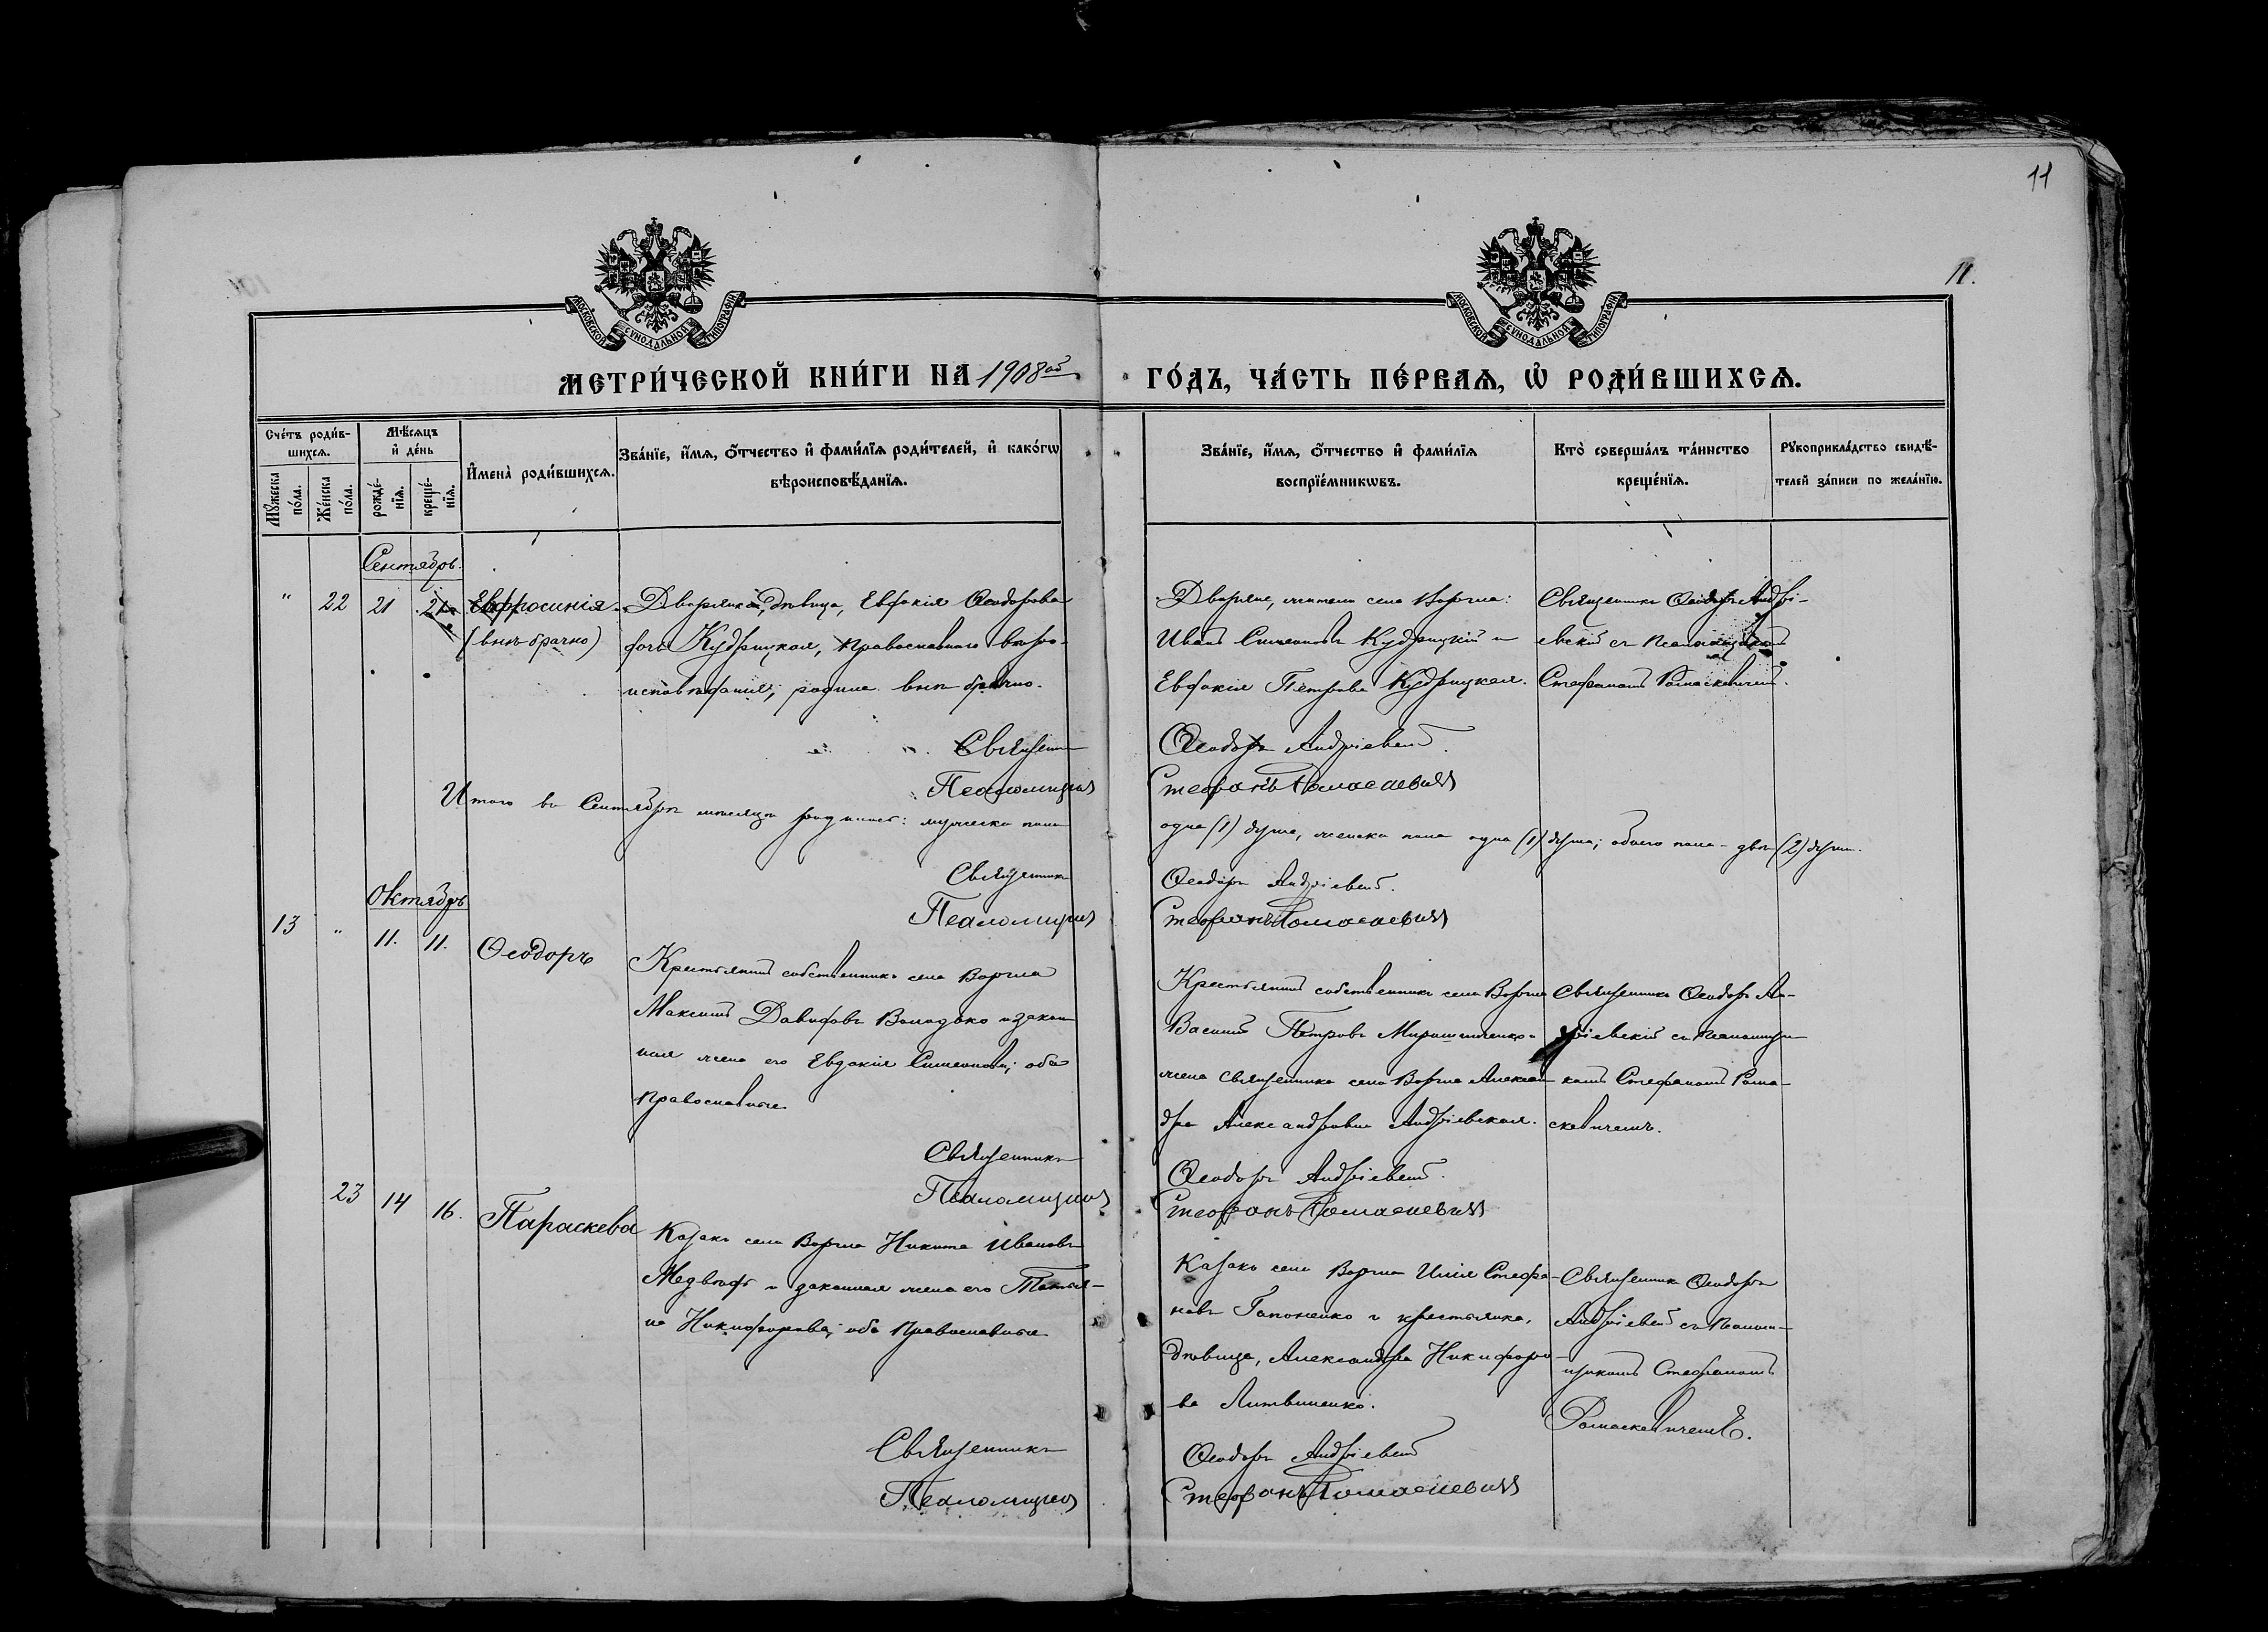 11
11.
МОСКОВСКОЙ СѴНОДАЛЬНОЙ ТИПОГРАФІИ
МОСКОВСКОЙ СѴНОДАЛЬНОЙ ТИПОГРАФІИ
МЕТРИ́ЧЕСКОЙ КНИ́ГИ НА 1908ой ГО́ДЪ, ЧА́СТЬ ПЕ́РВАѦ, Ѡ҆ РОДИ́ВШИХСѦ.
Сче́тъ роди́в-
шихсѧ.
Мꙋ́жеска
по́ла.
Же́нска
по́ла.
Мѣ́сѧцъ
и҆ де́нь
рожде́-
нїѧ.
креще́-
нїѧ.
И҆мена̀ роди́вшихсѧ.
Зва́нїе, и҆́мѧ, ѻ҆́тчество и҆ фами́лїѧ роди́телей, и҆ како́гѡ
вѣроисповѣ́данїѧ.
Зва́нїе, и҆́мѧ, ѻ҆́тчество и҆ фами́лїѧ
воспрїе́мникѡвъ.
Кто̀ соверша́лъ та́инство
креще́нїѧ.
Рꙋкоприкла́дство свидѣ́-
телей за́писи по жела́нїю.
Сентябрь.
" 22 21 21
Евфросинія
(внѣбрачно)
Дворянка, дѣвица, Евдокія Ѳеодорова
Кудрицкая, православнаго вѣро-
исповѣданія; родила внѣ брачно.
Дворяне, жители села Воргла:
Иванъ Симеоновъ Кудрицкій и
Евдокія Петрова Кудрицкая.
Священникъ Ѳеодоръ Андрі-
евскій съ псаломщикомъ
Стефаномъ Ромаскевичемъ.
Священникъ Ѳеодоръ Андріевскій.
Псаломщикъ Стефанъ Ромаскевичъ
Итого въ Сентябрѣ мѣсяцѣ родилось: мужеска пола одна (1) душа, женска пола одна (1) душа; обоего пола - двѣ (2) души.
Священникъ Ѳеодоръ Андріевскій.
Псаломщикъ Стефанъ Ромаскевичъ
Октябрь
13 " 11. 11.
Ѳеодоръ
Крестьянинъ собственникъ села Воргла
Максимъ Давидовъ Володько и закон-
ная жена его Евдокія Симеонова; оба
православные
Крестьянинъ собственникъ села Воргла
Василій Петровъ Мирошниченко и
жена священника села Воргла Алексан-
дра Александровна Андріевская.
Священникъ Ѳеодоръ Ан-
дріевскій съ псаломщи-
комъ Стефаномъ Рома-
скевичемъ.
Священникъ Ѳеодоръ Андріевскій.
Псаломщикъ Стефанъ Ромаскевичъ
23 14 16.
Параскева
Казакъ села Воргла Никита Ивановъ
Медвѣдь и законная жена его Татья-
на Никифорова; оба православные
Казакъ села Воргла Илія Стефа-
новъ Гапоненко и крестьянка,
дѣвица, Александра Никифоро-
ва Литвиненко.
Священникъ Ѳеодоръ
Андріевскій съ псалом-
щикомъ Стефаномъ
Ромаскевичемъ.
Священникъ Ѳеодоръ Андріевскій
Псаломщикъ Стефанъ Ромаскевичъ